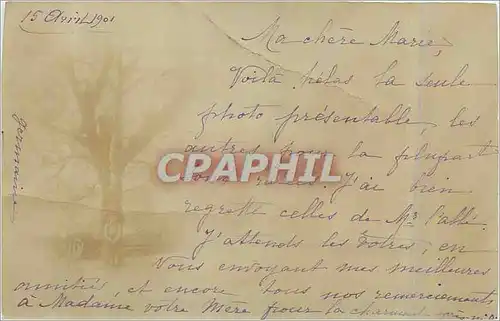 15 Avril 1901
Ma chère Marie,
Voilà hélas la seule
photo présentable, les
autres pour la plupart
CPARPHIL
J'ai bien
regretté celles de Mr l'abbé.
J'attends les vôtres ; en
vous envoyant mes meilleures
amitiés, et encore tous nos remerciements
à Madame votre Mère pour la charmante
Germaine